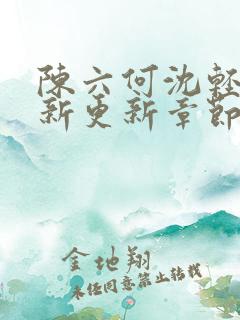 陳六何沈輕
新更新章節
金地翔
未經同意禁止轉載